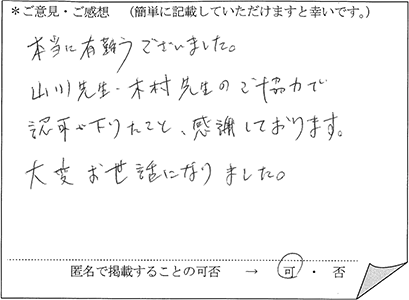 *ご意見・ご感想 (簡単に記載していただけますと幸いです。)
本当に有難うございました。
山川先生・木村先生のご協力で
認可が下りたこと、感謝しております。
大変お世話になりました。
匿名で掲載することの可否 → 可 ・ 否